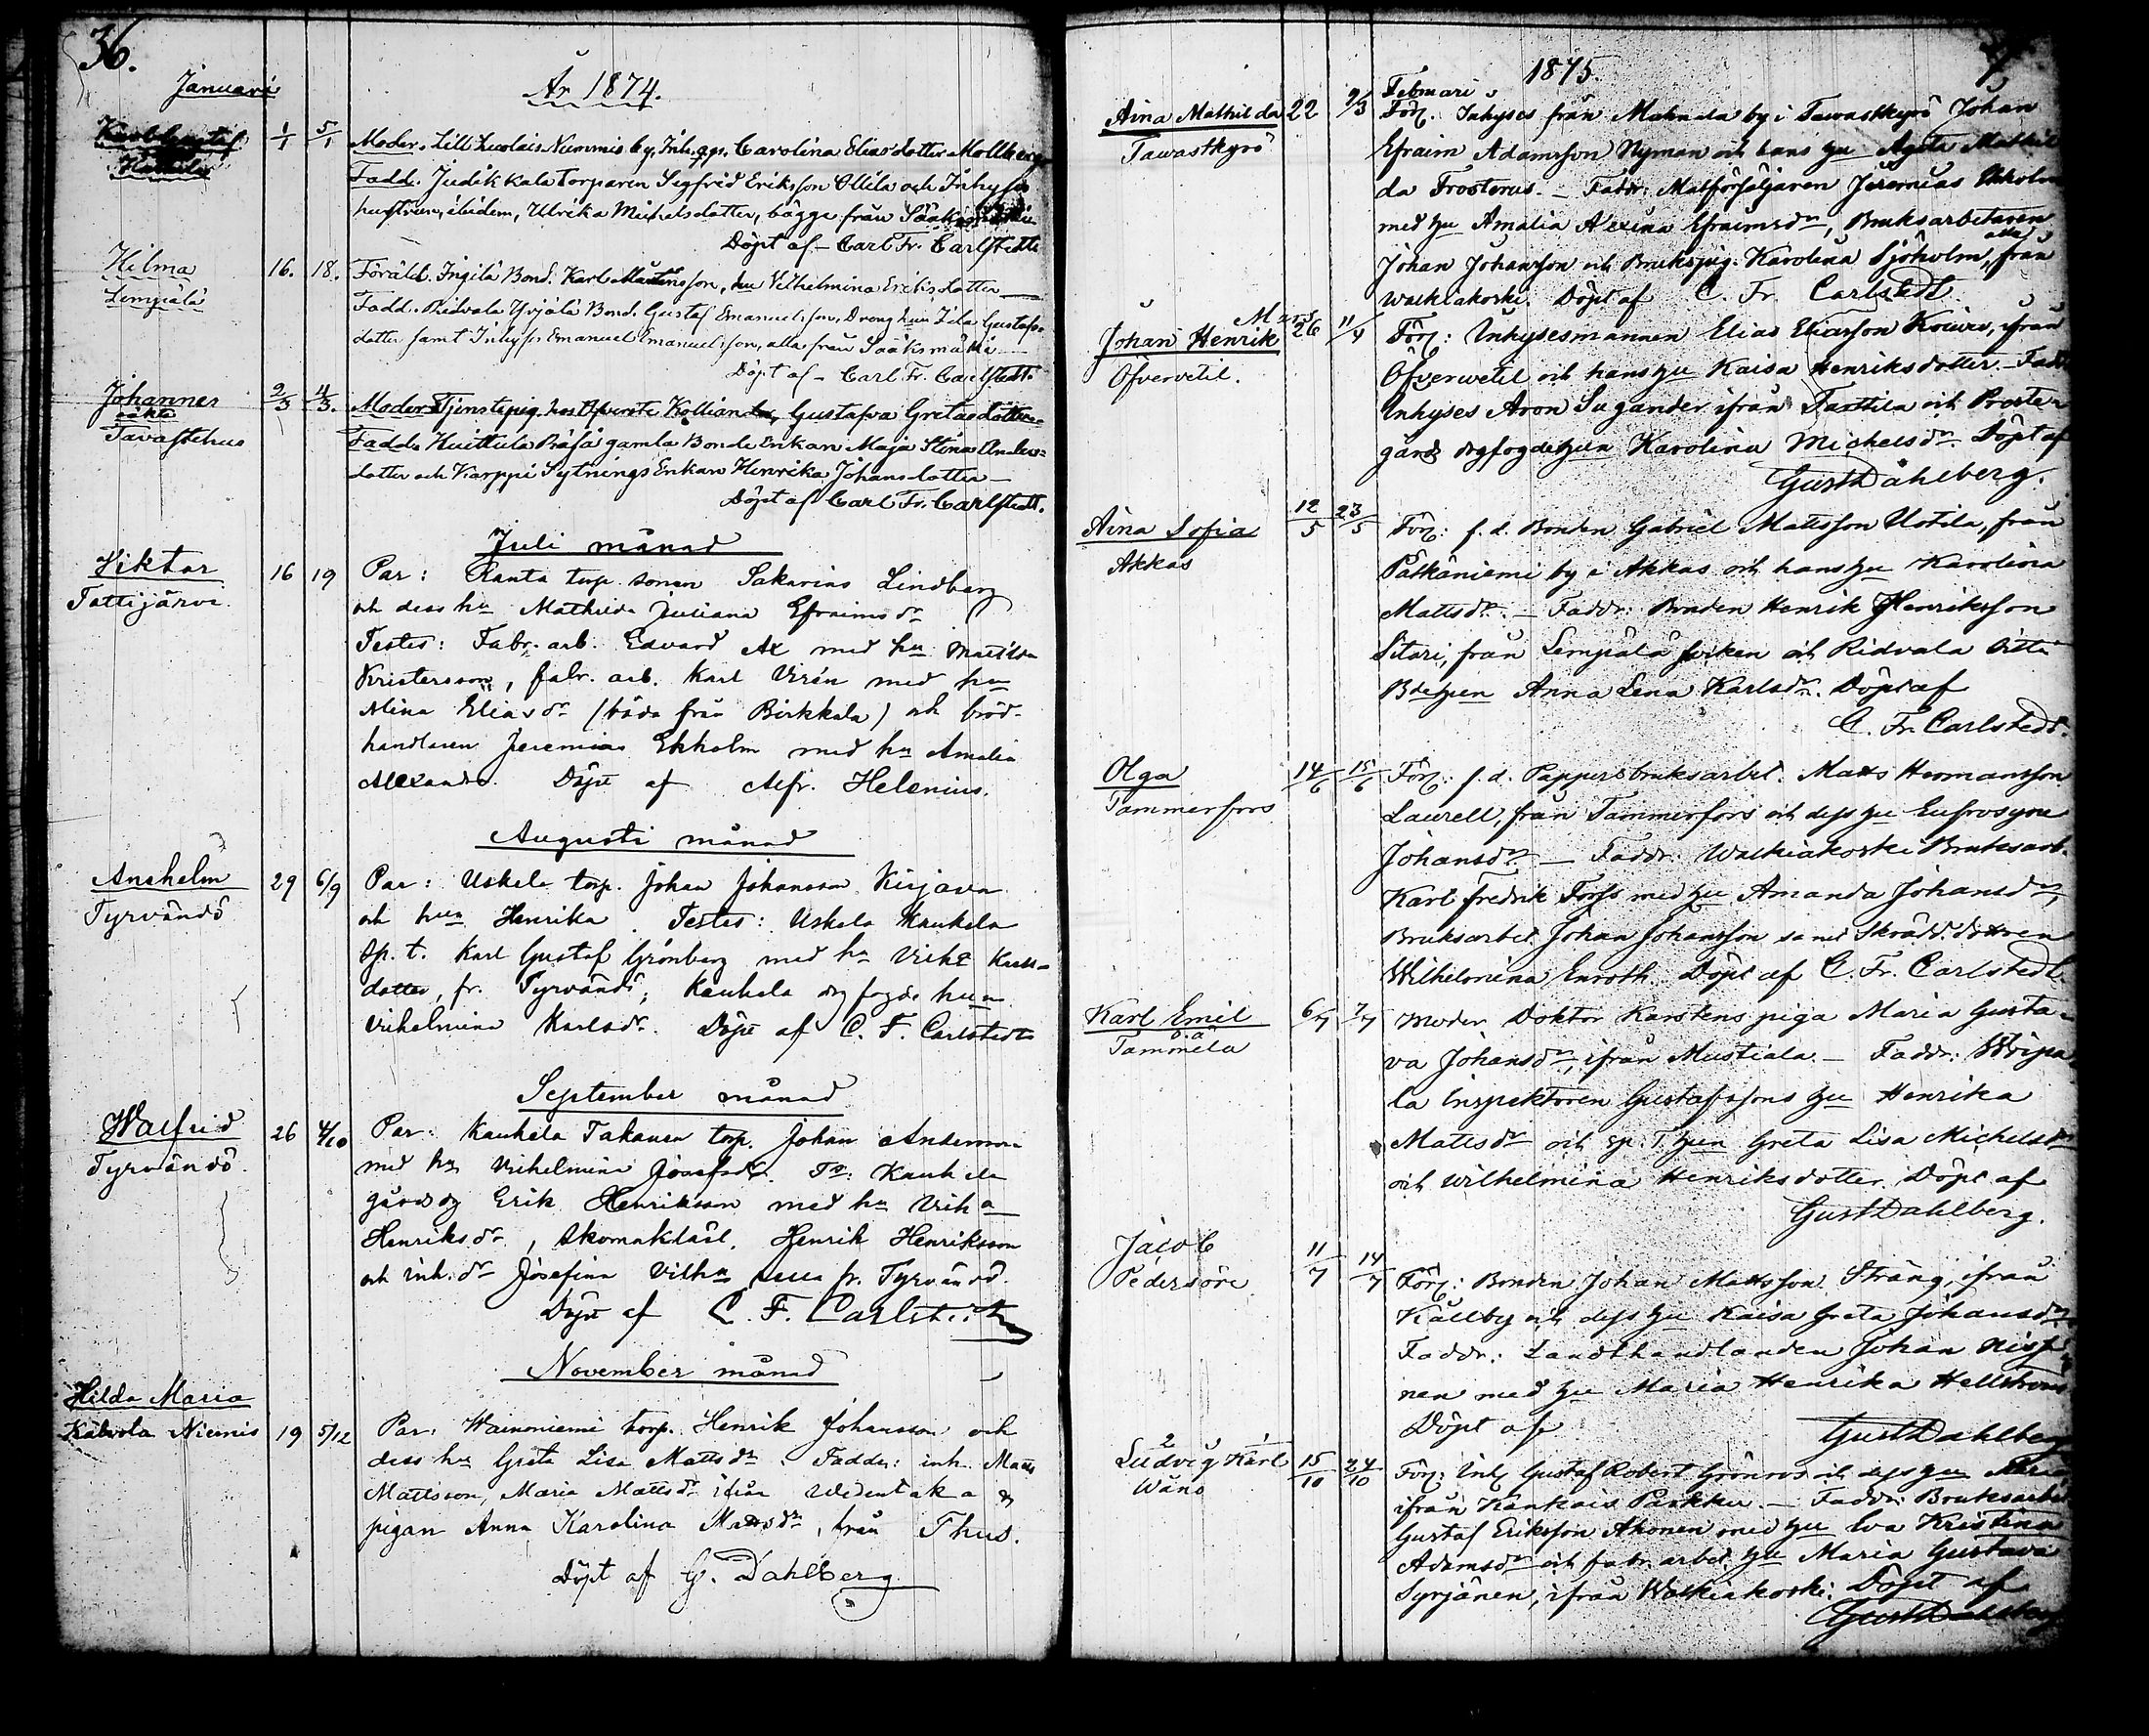 36.
Januari
År 1874.
Karl Gustaf
Hattula
1/1 5/1
Moder. Lill Lucolais Nummis by, Inh. gps. Carolina Eliasdotter Mollberg
Fadd. Judikkala torparen Sigfrid Eriksson Ollila och Inhyses
hustrun, ibidem, Ulrika Michelsdotter, bägge från Sääksmäki
Döpt af - Carl Fr. Carlstedt
Hilma
Lempälä
16. 18.
Föräld. Ingilä Bond. Karl Mårtensson, hu Vilhelmina Eriksdotter
Fadd. Ridvala Yrjälä Bond. Gustaf Emanuelsson, Dreng hun Ida Gustafs-
dotter samt Inhyses Emanuel Emanuelsson, alla från Sääksmäki
Döpt af - Carl Fr. Carlstedt.
Johannes
oäkta
Tavastehus
2/3 4/3.
Moder Tjenstepig. hos Öfverste Kollian Gustafva Gretasdotter
Fadd. Huittula Präfä gamla Bonde Enkan Maja Stina Anders-
dotter och Karppi Sytnings Enkan Henrika Johansdotter
Döpt af Carl Fr. Carlstedt.
Juli månad
Viktor
Tottijärvi
16 19
Par: Ranta torp. sonen Sakarias Lindberg
och dess hu Mathilda Juliana Efraimsdr
Testes: Fabr. arb. Edvard Ax med hu Matilda
Kristersson, fabr. arb. Karl Virén med hu
Mina Eliasdr (båda från Birkkala) och bröd-
handlaren Jeremias Ekholm med hu Amalia
Alexandra. Döpt af Alfr. Helenius.
Augusti månad
Anshelm
Tyrvändö
29 6/9
Par: Uskela torp. Johan Johansson Kirjava
och hun Henrika. Testes: Uskela Kaukela
sp. t. Karl Gustaf Grönberg med hu Vilha Karls-
dotter, fr. Tyrvändö; Kaukela dgfogde hun
Vilhelmina Karlsdr. Döpt af C. F. Carlstedt
September månad
Walfrid
Tyrvändö.
26 4/10
Par: Kaukela Takanen torp. Johan Andersson
med hu Vilhelmina Josefsdr. Ts: Kaukela
gårdsdg Erik Henriksson med hu Vilha
Henriksdr, skomakläsl. Henrik Henriksson
och inh. dr Josefina Vilhm alla fr. Tyrvändö.
Döpt af C. F. Carlstedt
November månad
Hilda Maria
Kalvola Niemis
19 5/12
Par. Wainoniemi torp. Henrik Johansson och
dess hu Greta Lisa Mattsdr. Faddr: inh. Matts
Mattsson, Maria Mattsdr ifrån Wedentaka &
pigan Anna Karolina Mattsdr, från Thus.
Döpt af G. Dahlberg
1875.
Februari
Aina Mathilda
Tawastkyrö
22 9/3
Förl. Inhyses från Mahnala by i Tawastkyrö Johan
Efraim Adamsson Nyman och hans hu Agata Mathil
da Frosterus. - Faddr: Matförsäljaren Jeremias Ekholm
med hu Amalia Alexina Efraimsdr, Bruksarbetaren
Johan Johansson och Brukspig. Karolina Sjöholm, alla från
Walkiakoski. Döpt af C. Fr. Carlstedt
Mars
Johan Henrik
Öfvervetil.
26 11/4
Förl: Inhysesmannen Elias Eliasson Kouro, ifrån
Öfverwetil och hans hu Kaisa Henriksdotter. - Fadd
Inhyses Aron Sugander ifrån Tarttila och Proste-
gårds dgfogdehun Karolina Michelsdr Döpt af
Gust Dahlberg.
Aina Sofia
Akkas
12/5 23/5
Förl: f. d. Bonden Gabriel Mattsson Ustila, från
Pätkäniemi by i Akkas och hans hu Karolina
Mattsdr. - Faddr: Bonden Henrik Henriksson
Sitari, från Lempiälä socken och Ridvala
Bdehun Anna Lena Karlsdr. Döpt af
C. Fr. Carlstedt.
Olga
Tammerfors
14/6 15/6
Förl: f. d. Pappersbruksarbet. Matts Hermansson
Laurell, från Tammerfors och dess hu Eufrosyne
Johansdr. - Faddr: Walkiakoski Bruksarb.
Karl Fredrik Forss med hu Amanda Johansdr,
Bruksarbet. Johan Johansson samt Skrädd. dottren
Wilhelmina Enroth. Döpt af C. Fr. Carlstedt.
Karl Emil
o.ä
Tammela
6/7 7/7
Moder Doktor Karstens piga Maria Gusta-
va Johansdr, ifrån Mustiala. - Faddr: Woipa
la Inspektoren Gustafssons hu Henrika
Mattsdr och sp. Thun Greta Lisa Michelsdr
och Wilhelmina Henriksdotter. Döpt af
Gust Dahlberg.
Jacob
Pedersöre
11/7 14/7
Förl: Bonden Johan Mattsson Sträng, ifrån
Källby och dess hu Kaisa Greta Johansdr
Faddr: Landthandlanden Johan Nissi
nen med hu Maria Henrika Hellström
Döpt af
Gust Dahlberg
2 1
Ludvig Karl
Wånå
15/10 24/10
Förl: Inh. Gustaf Robert Grönroos och dess hu Maria
ifrån Kankais Parkku. - Faddr: Bruksarbet
Gustaf Eriksson Ahonen med hu Eva Kristina
Adamsdr och fabr. arbet. hu Maria Gustava
Syrjänen, ifrån Walkiakoski: Döpt af
Gust Dahlberg